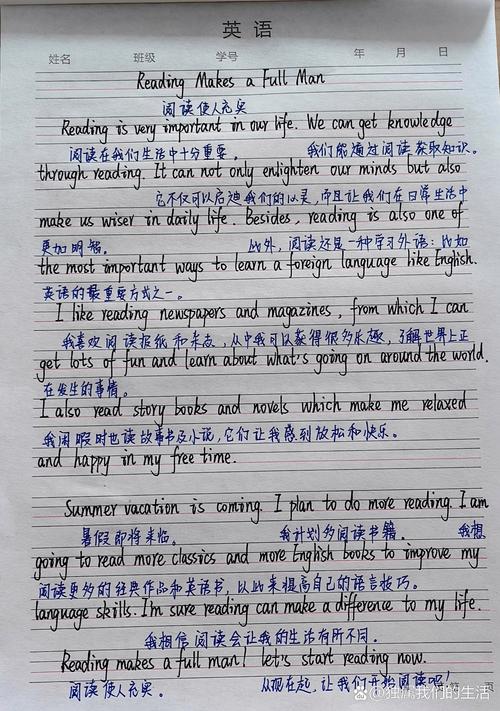 英语
姓名 班级 学号 年 月 日
Reading Makes a Full Man
阅读使人充实
Reading is very important in our life. We can get knowledge
阅读在我们生活中十分重要。 我们能通过阅读获取知识。
through reading. It can not only enlighten our minds but also
它不仅可以启迪我们的心灵,而且让我们在日常生活中
make us wiser in daily life. Besides, reading is also one of
更加明智。 此外,阅读还是一种学习外语:比如
the most important ways to learn a foreign language like English.
英语的最重要方式之一。
I like reading newspapers and magazines, from which I can
我喜欢阅读报纸和杂志,从中我可以获得很多乐趣,了解世界上正
get lots of fun and learn about what's going on around the world.
在发生的事情。
I also read story books and novels which make me relaxed
我闲暇时也读故事书及小说,它们让我感到放松和快乐。
and happy in my free time.
Summer vacation is coming. I plan to do more reading. I am
暑假即将来临。 我计划多阅读书籍。 我想
going to read more classics and more English books to improve my
阅读更多的经典作品和英语书,以此来提高自己的语言技巧。
language skills. I'm sure reading can make a difference to my life.
我相信阅读会让我的生活有所不同。
Reading makes a full man! let's start reading now.
阅读使人充实。 从现在起,让我们开始阅读吧!
我们的生活
页